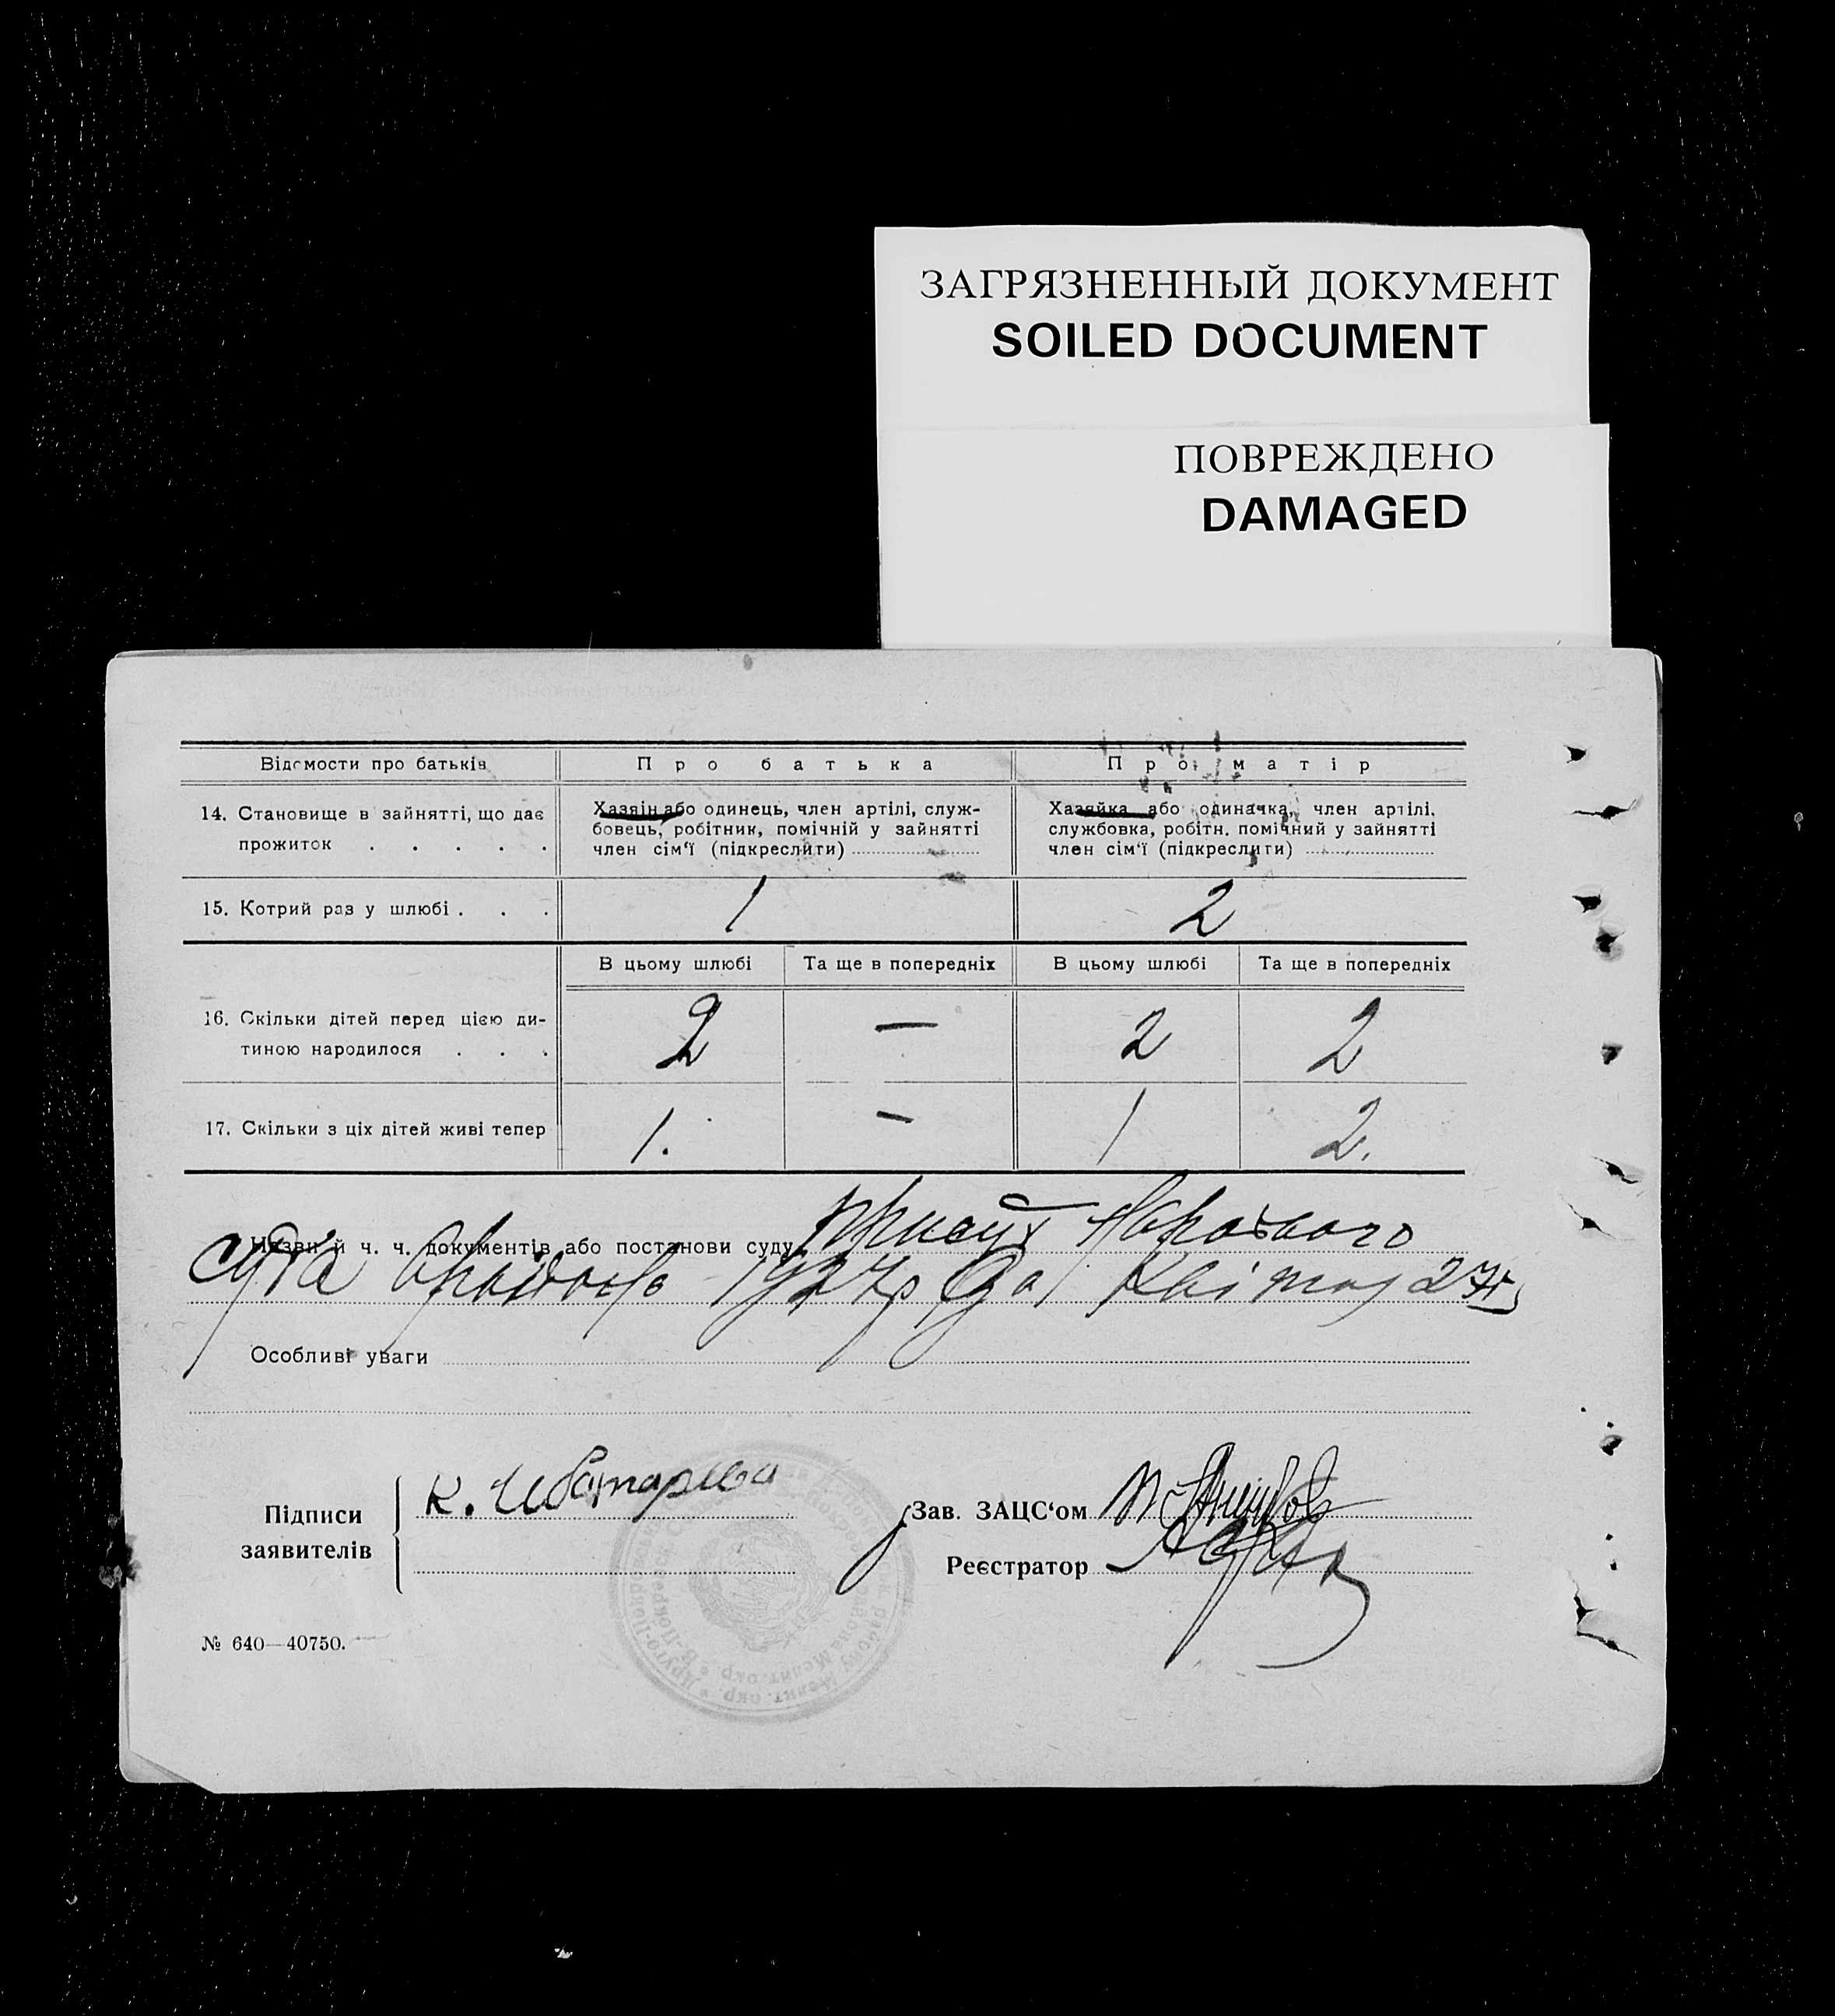 ЗАГРЯЗНЕННЫЙ ДОКУМЕНТ
SOILED DOCUMENT
ПОВРЕЖДЕНО
DAMAGED
Відомости про батьків
Про батька
Про матір
14. Становище в зайнятті, що дає
прожиток . . . . .
Хазяін або одинець, член артілі, служ-
бовець, робітник, помічній у зайнятті
член сім‘ї (підкреслити)
Хазяйка або одиначка, член артілі,
службовка, робітн. помічний у зайнятті
член сім‘ї (підкреслити)
15. Котрий раз у шлюбі . . .
1
2
В цьому шлюбі
Та ще в попередніх
В цьому шлюбі
Та ще в попередніх
16. Скільки дітей перед цією ди-
тиною народилося . . .
2
—
2
2
17. Скільки з ціх дітей живі тепер
1.
—
1
2.
Назви й ч. ч. документів або постанови суду
суда 1927р 27
Особливі уваги
Підписи
заявителів
К.
Зав. ЗАЦС‘ом
Реєстратор
№ 640—40750.